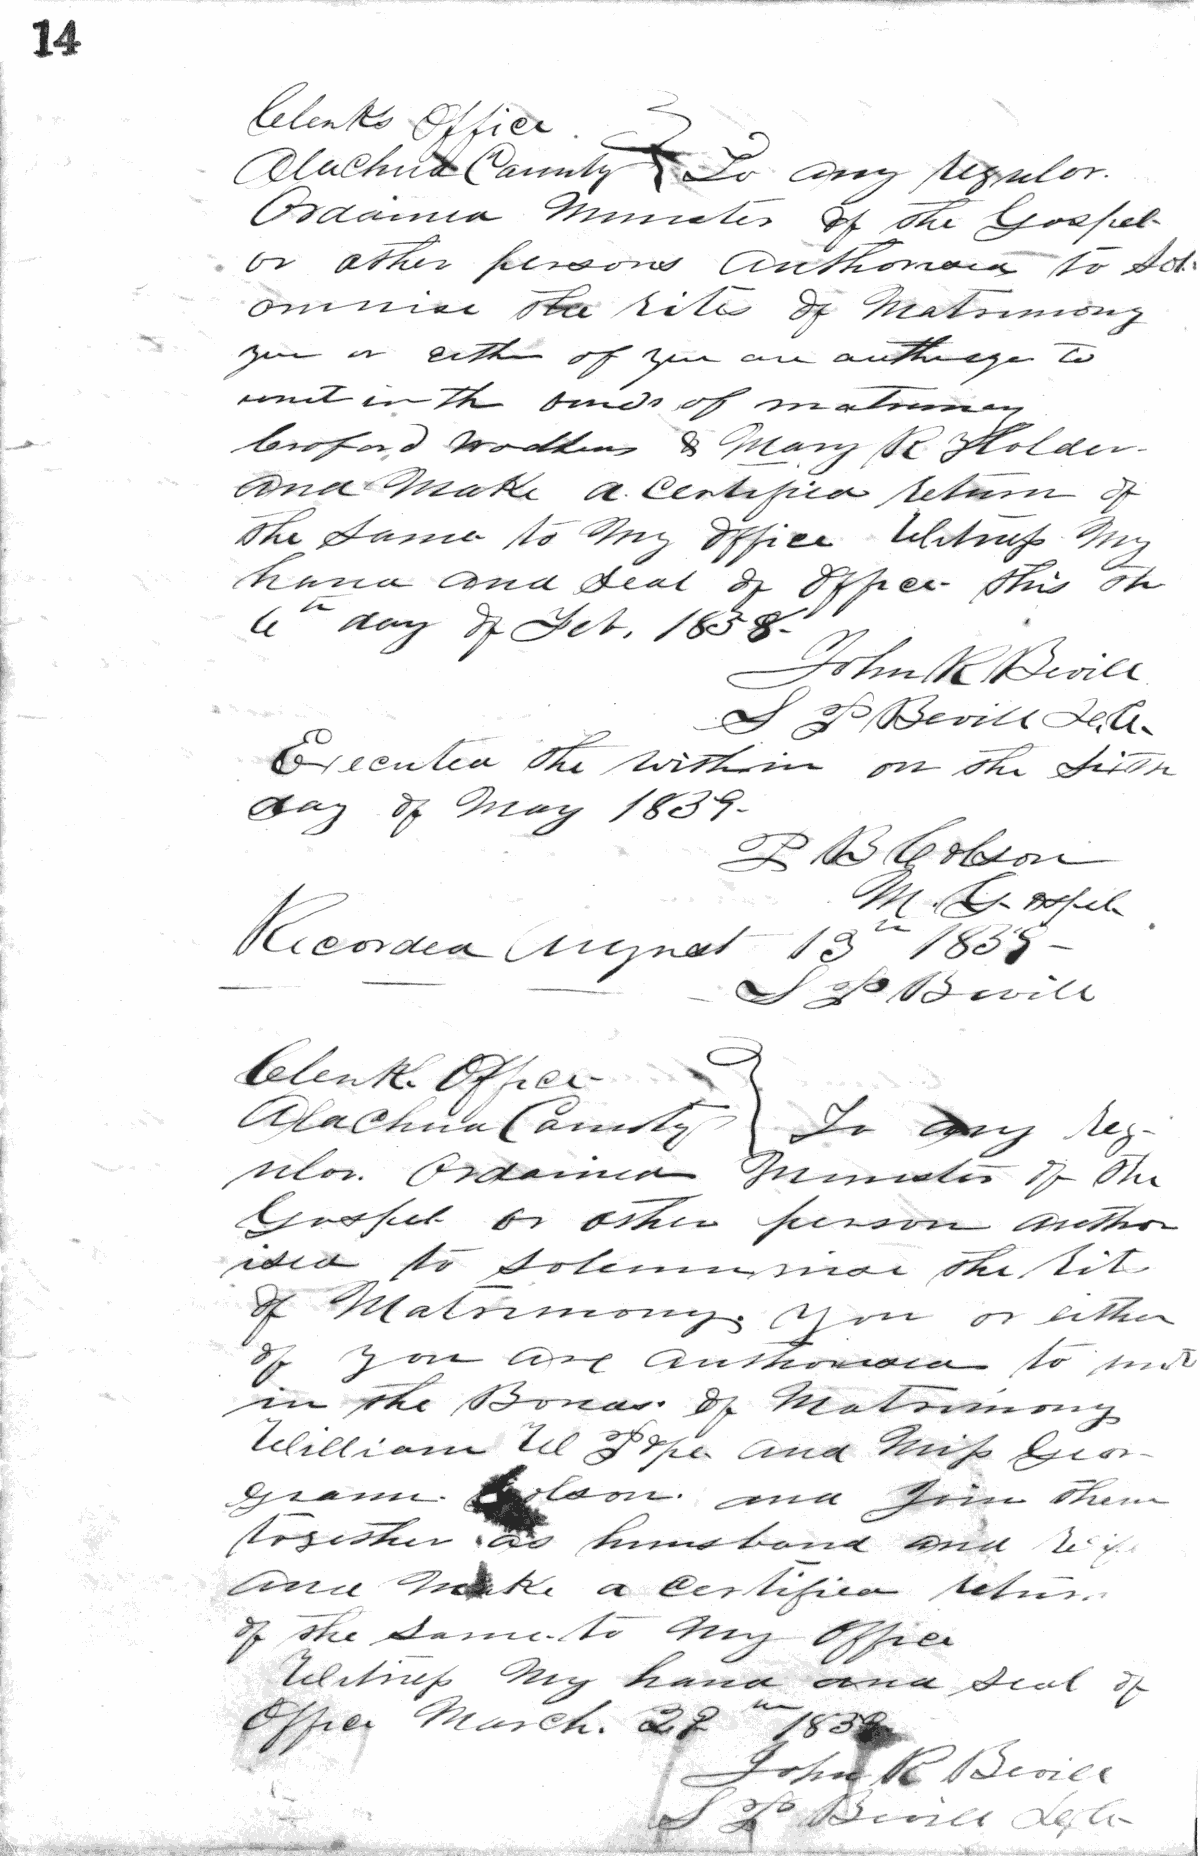 14
Clerks Office
Alachua County } To any regular
Ordained Minister of the Gospel
or other persons Authorised to Sol-
omnise the rites of Matrimony
you or either of you are authorize to
unit in th bonds of matrimony
Croford & Mary R Holder
and Make a certified return of
the same to My Office Witness My
hand and Seal of Office this th
6th day of Feb. 1838
John R Bevill
S P Bevill D.C.
Executed the within on the Sixth
day of May 1839
P B Colson
M. Gospel
Recorded August 13th 1839
S P Bevill
Clerk. Office
Alachua County } To any Reg-
ular. Ordained Minister of the
Gospel or other person author
ised to Solemnnise the Rit
of Matrimony. You or either
of you are Authorised to unit
in the Bonds. of Matrimony
William W Pope and Miss Geor-
giann. Colson. and Join them
together as husband and Wife
and Make a Certified return
of the same to My Office
Witness My hand and Seal of
Office March. 1839
John R Bevill
S P Bevill D.C.